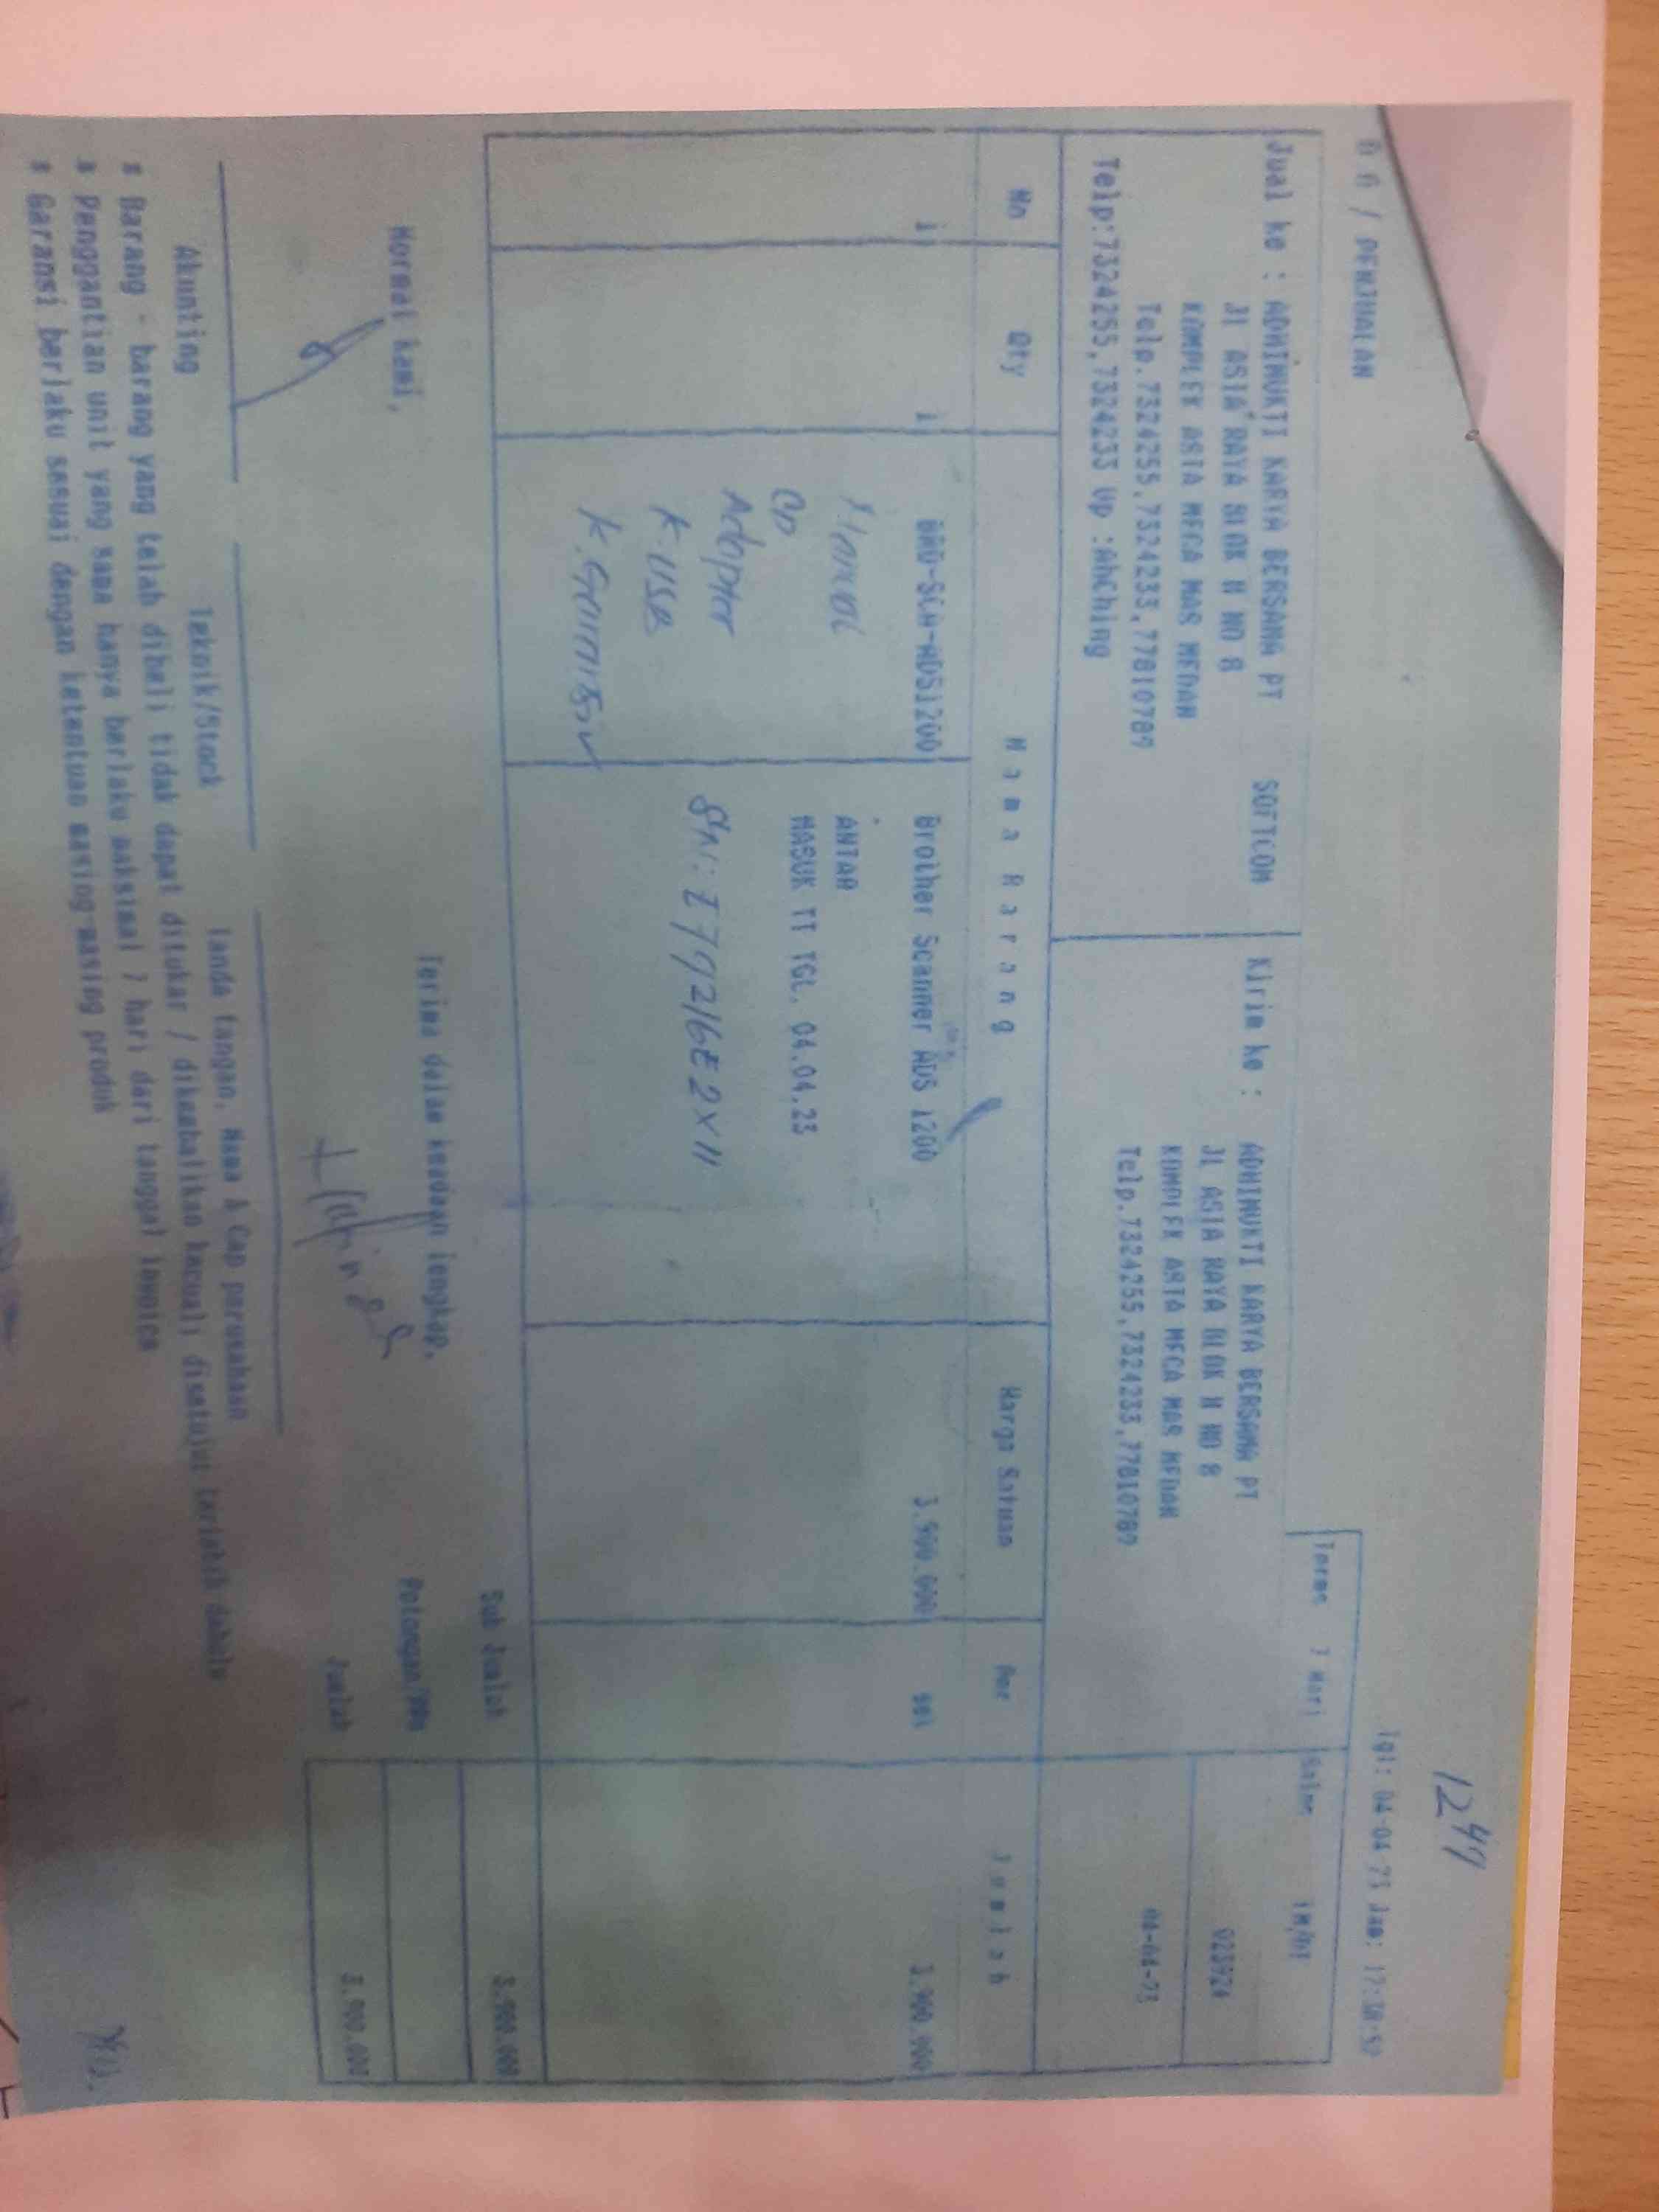 12
/ PENJUALAN
Tgl: 04-04-23 Jam:
Jual ke : ADHIMUKTI KARYA BERSAMA PT SOFTCOM
JL ASIA RAYA BLOK H NO 8
KOMPLEK ASIA MEGA MAS MEDAN
Telp.7324255,7324233,77810789
Telp:7324255,7324233 Up :AhChing
Kirim ke : ADHIMUKTI KARYA BERSAMA PT
JL ASIA RAYA BLOK H NO 8
KOMPLEK ASIA MEGA MAS MEDAN
Telp.7324255,7324233,77810789
Terms 7 Hari
Sales
023924
04-04-23
No Qty Nama Barang Harga Satuan Per Jumlah
1 1 BRO-SCN-ADS1200 Brother Scanner ADS 1200 3.900.000 set 3.900.000
ANTAR
MASUK TT TGL. 04.04.23
Manual
CD
Adapter
K. USB
K. Garansi
Sub Jumlah 3.900.000
Jumlah 3.900.000
Hormat kami,
Terima dalam keadaan lengkap,
Akunting Teknik/Stock Tanda tangan, Nama & Cap perusahaan
* Barang - barang yang telah dibeli tidak dapat ditukar / dikembalikan kecuali disetujui terlebih dahulu
* Penggantian unit yang sama hanya berlaku maksimal 7 hari dari tanggal invoice
* Garansi berlaku sesuai dengan ketentuan masing-masing produk